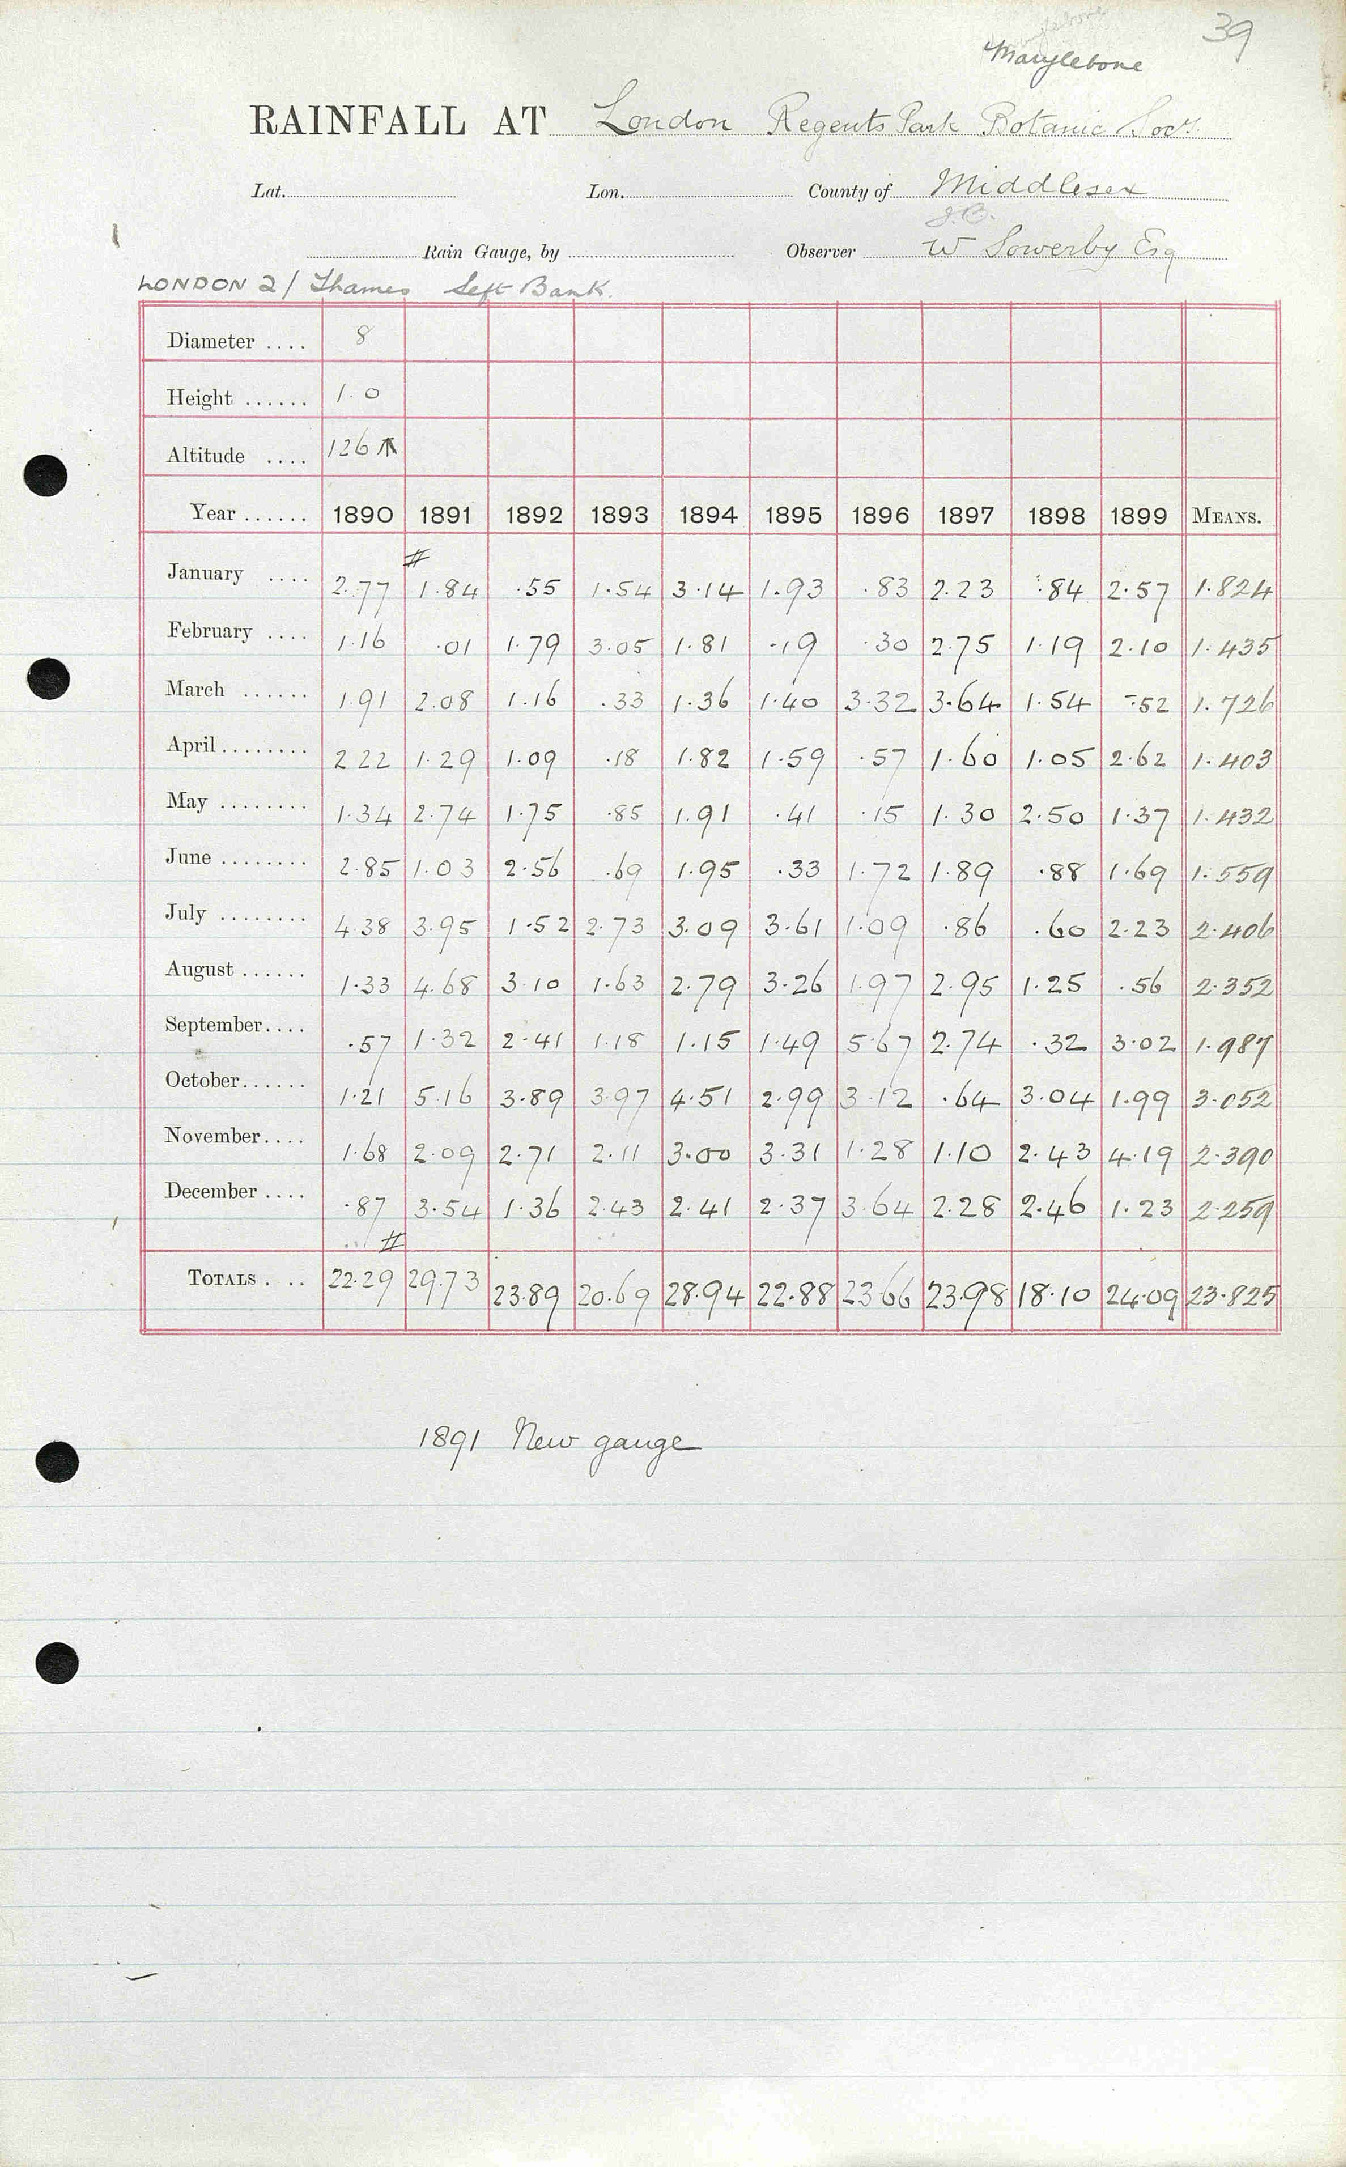 39
Marylebone
RAINFALL AT London Regents Park Botanic Socy.
Lat. Lon. County of Middlesex
J. B.
Rain Gauge, by Observer W Sowerby Esq
LONDON 2/ Thames Left Bank.
Diameter .... 8
Height ...... 1.0
Altitude .... 126
Year ...... 1890 1891 1892 1893 1894 1895 1896 1897 1898 1899 MEANS.
January .... 2.77 1.84 .55 1.54 3.14 1.93 .83 2.23 .84 2.57 1.824
February .... 1.16 .01 1.79 3.05 1.81 .19 .30 2.75 1.19 2.10 1.435
March ...... 1.91 2.08 1.16 .33 1.36 1.40 3.32 3.64 1.54 .52 1.726
April........ 2.22 1.29 1.09 .18 1.82 1.59 .57 1.60 1.05 2.62 1.403
May ........ 1.34 2.74 1.75 .85 1.91 .41 .15 1.30 2.50 1.37 1.432
June ........ 2.85 1.03 2.56 .69 1.95 .33 1.72 1.89 .88 1.69 1.559
July ........ 4.38 3.95 1.52 2.73 3.09 3.61 1.09 .86 .60 2.23 2.406
August ...... 1.33 4.68 3.10 1.63 2.79 3.26 1.97 2.95 1.25 .56 2.352
September.... .57 1.32 2.41 1.18 1.15 1.49 5.67 2.74 .32 3.02 1.987
October...... 1.21 5.16 3.89 3.97 4.51 2.99 3.12 .64 3.04 1.99 3.052
November.... 1.68 2.09 2.71 2.11 3.00 3.31 1.28 1.10 2.43 4.19 2.390
December .... .87 3.54 1.36 2.43 2.41 2.37 3.64 2.28 2.46 1.23 2.259
TOTALS . .. 22.29 29.73 23.89 20.69 28.94 22.88 23.66 23.98 18.10 24.09 23.825
1891 New gauge